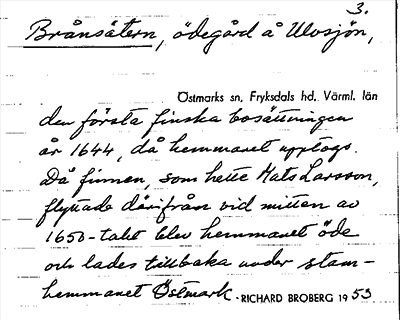 3.
Brånsätern, ödegård å Ulvsjön,
Östmarks sn, Fryksdals hd, Värml. län
den första finska bosättningen
år 1644, då hemmanet upptogs.
Då finnen, som hette Mats Larsson,
flyttade därifrån vid mitten av
1650-talet blev hemmanet öde
och lades tillbaka under stam-
hemmanet Östmark.
RICHARD BROBERG 1953